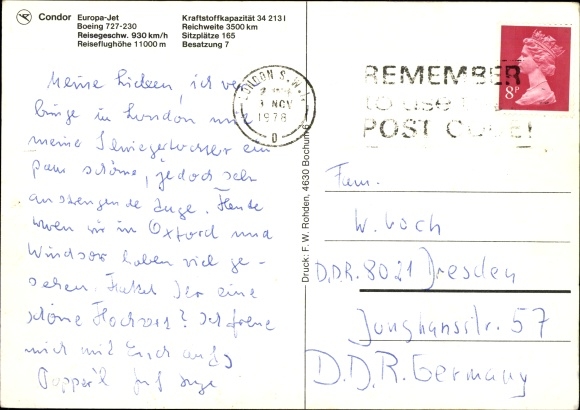 Condor
Europa-Jet
Boeing 727-230
Reisegeschw. 930 km/h
Reiseflughöhe 11000 m
Kraftstoffkapazität 34 213 l
Reichweite 3500 km
Sitzplätze 165
Besatzung 7
LONDON S.W.
1 NOV
1978
REMEMBER
to use
POST CODE!
8P
Meine Lieben, ich ver
bringe in London mit
meiner Schwiegertochter ein
paar schöne, jedoch sehr
anstrengende Tage. Heute
waren wir in Oxford und
Windsor haben viel ge-
sehen. Hattet Ihr eine
schöne Hochzeit? Ich freue
mich mit Euch
Fam.
W. Koch
D.D.R. 8021 Dresden
Junghansstr. 57
D.D.R. Germany
Druck: F. W. Rohden, 4630 Bochum 6